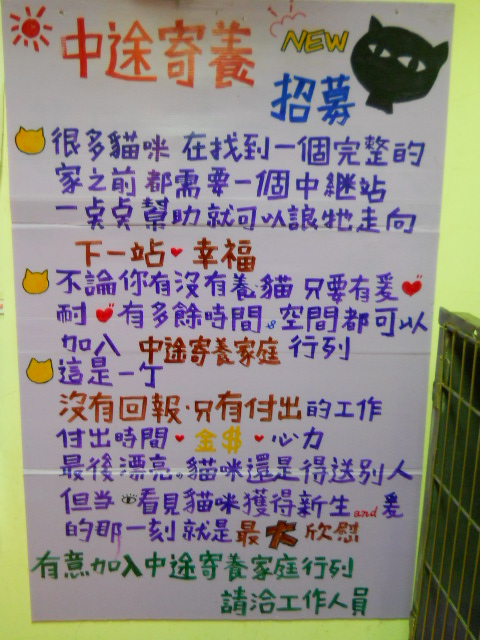 中途寄養
NEW
招募
很多貓咪 在找到一個完整的
家之前 都需要一個中繼站
一点点幫助就可以讓牠走向
下一站♥幸福
不論你有沒有養貓 只要有爱♥
耐♥有多餘時間&空間都可以
加入 中途寄養家庭 行列
這是一个
沒有回報·只有付出的工作
付出時間♥金$♥心力
最後漂亮的貓咪還是得送別人
但当 看見貓咪獲得新生and爱
的那一刻就是最大欣慰
有意加入中途寄養家庭行列
請洽工作人員